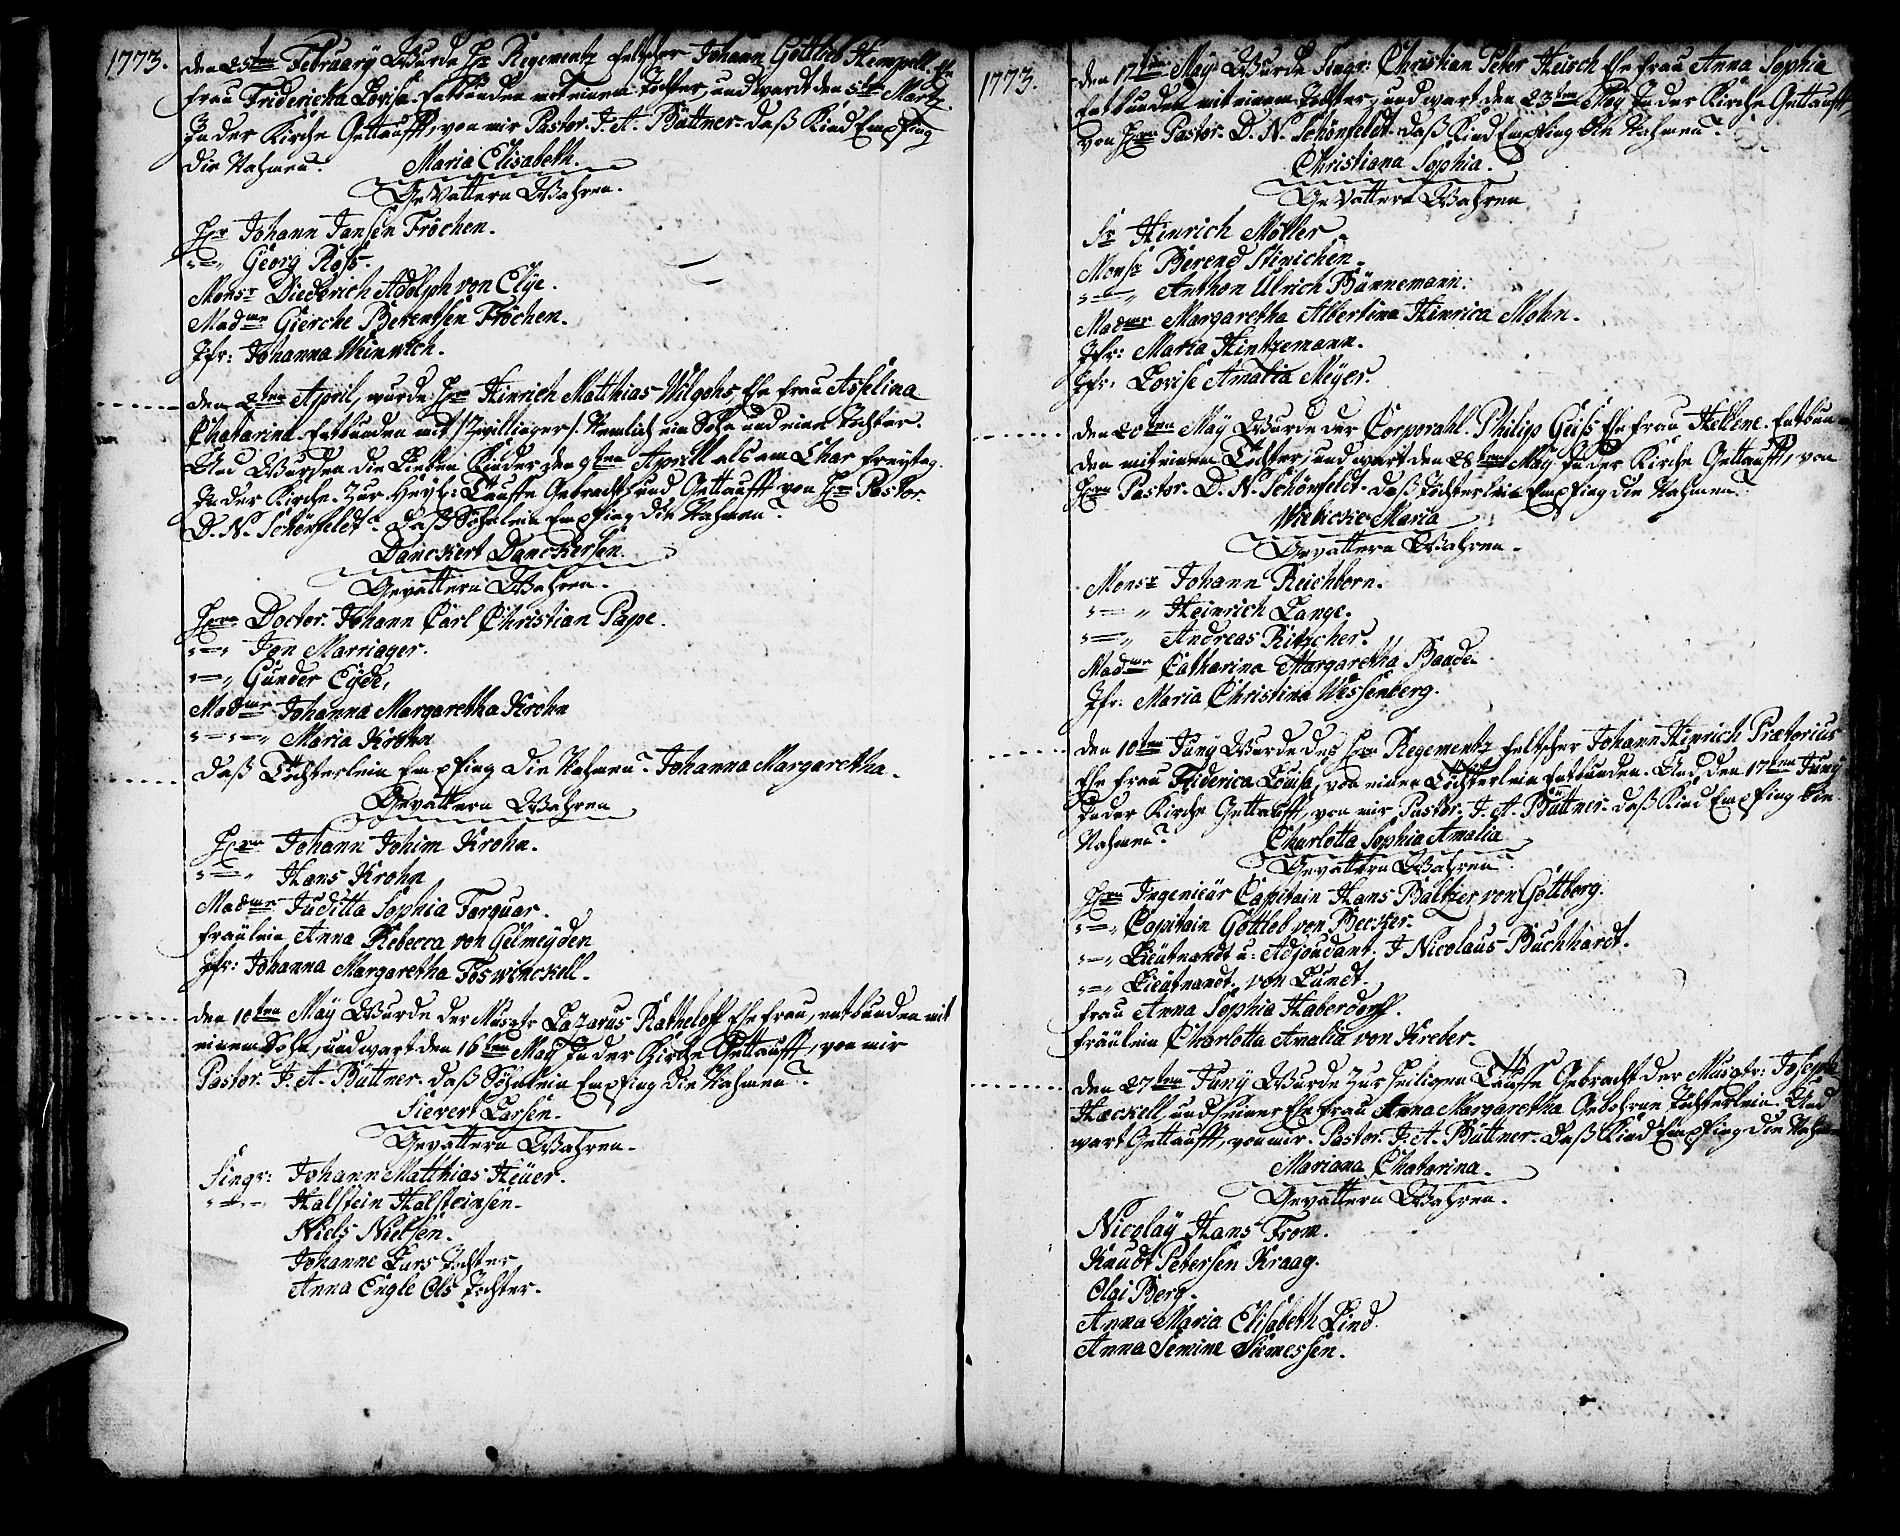 1773.
den 25ten February Wurde Hr Regementz feltscher Johann Gottlieb Hempell Ehe
frau Fridericha Lovisa. Entbunden mit einem Tochter, und wardt den 5te Martz
In der Kirche Gettaufft, von mir Pastor. J. A. Büttner. Daß Kind Empfing
die Nahmen:
Maria Elisabeth.
GeVattern Wahren.
Hr Johann Jansen Fröchen.
" Georg Ross.
Monsr Diederich Adolph von Elye.
Madme Gierche Berentsen Fröchen.
Jfr: Johanna Weinwich.
den 2ten April, wurde Hr Hinrich Matthias Wilgehs Ehe frau Asselina
Chatarina. Entbunden mit /:Zwillinger:/. Nemlich ein Sohn und einer Tochter.
Und Wurden die Lieben Kinder den 9ten Aprill als am Char freytag.
In der Kirche. zur Heyl: Tauffe Gebracht, und Gettaufft von Hr Pastor
D. N. Schönfeldt. Daß Söhnlein Empfing die Nahmen:
Danckert Danckertsen
Gevattern Wahren.
Hrrn Doctor. Johann Carl Christian Pape.
" Jon Marriager.
" Gunder Eyde,
Madme Johanna Margaretha Krohn
" Maria Krohn
Daß Töchterlein Empfing die Nahmen: Johanna Margaretha.
Gevattern Wahren
Hrrn Johann Johim Krohn.
" Hans Krohn
Madme Juditta Sophia Farquar.
fräulein Anna Rebecca von Gelmeyden
Jfr: Johanna Margaretha Foswinckell.
den 10ten May Wurde der Musqtr Lazarus Ratheloff Ehe frau, entbunden mit
einem Sohn, und wart den 16ten May In der Kirche Gettaufft, von mir
Pastor. J. A. Büttner. Daß Söhnlein Empfing die Nahmen:
Sievert Larsen.
Gevattern Wahren.
Singr: Johann Matthias Heüer.
" Halstein Halsteinsen.
Niels Nielsen.
Johanne Lars Tochter
Anna Engle Ols Tochter.
1773.
den 17ten May Wurde Singr: Christian Peter Heisch Ehe frau Anna Sophia
Entbunden mit einem Tochter, und wart den 23ten May In der Kirche Gettaufft,
von Hrrn Pastor. D. N. Schönfeldt. Daß Kind Empfing die Nahmen:
Christiana Sophia.
GeVattern Wahren
Sr Hinrich Möller.
Monsr Berend Stinichen.
" Anthon Ulrich Bünnemann.
Madme Margaretha Albertina Hinrica Mohn.
Jfr: Maria Hintzemann.
Jfr: Lovise Amalia Meyer.
den 20ten May Wurde der Corporahl. Philip Geiss Ehe frau Hellene. Entbun
den mit einem Tochter, und wart den 28ten May In der Kirche Gettaufft, von
Hrrn Pastor. D. N. Schönfeldt. Daß Töchterlein Empfing die Nahmen:
Wiebicke Maria
Gevattern Wahren.
Monsr Johann Reichborn.
" Heinrich Lange.
" Andreas Ritzcher.
Madme Catharina Margaretha Baade.
Jfr: Maria Christina Wessenberg.
den 10ten Juny Wurde des Hrrn Regementz feltscher Johann Hinrich Prætorius
Ehe frau Friderica Louisa, von einen Töchterlein Entbunden. Und den 17ten Juny
In der Kirche Gettaufft, von mir Pastor. J. A. Büttner. Daß Kind Empfing die
Nahmen:
Charlotta Sophia Amalia
Gevattern Wahren
Hrrn Ingenieür Capitain Hans Baltzer von Göttberg.
" Capitain Gottlob von Becker.
" Lieutnandt u: Adjoudant. J Nicolaus Buchhardt.
" Lieutnandt. von Lundt.
frau Anna Sophia Haberdorff.
fräulein Charlotta Amalia von Kreber.
den 27ten Juny Wurde zur Heiligen Tauffe Gebracht der Musqtr: Joseph
Hackell, und seiner Ehe frau Anna Margaretha Gebohrne Töchterlein. Und
wart Gettaufft, von mir. Pastor. J. A. Büttner. Daß Kind Empfing die Nahmen
Mariana Chatarina.
Gevattern Wahren.
Nicolay Hans From.
Knudt Petersen Kraag.
Olai Berg.
Anna Maria Elisabeth Lind
Anna Semine Siemessen.